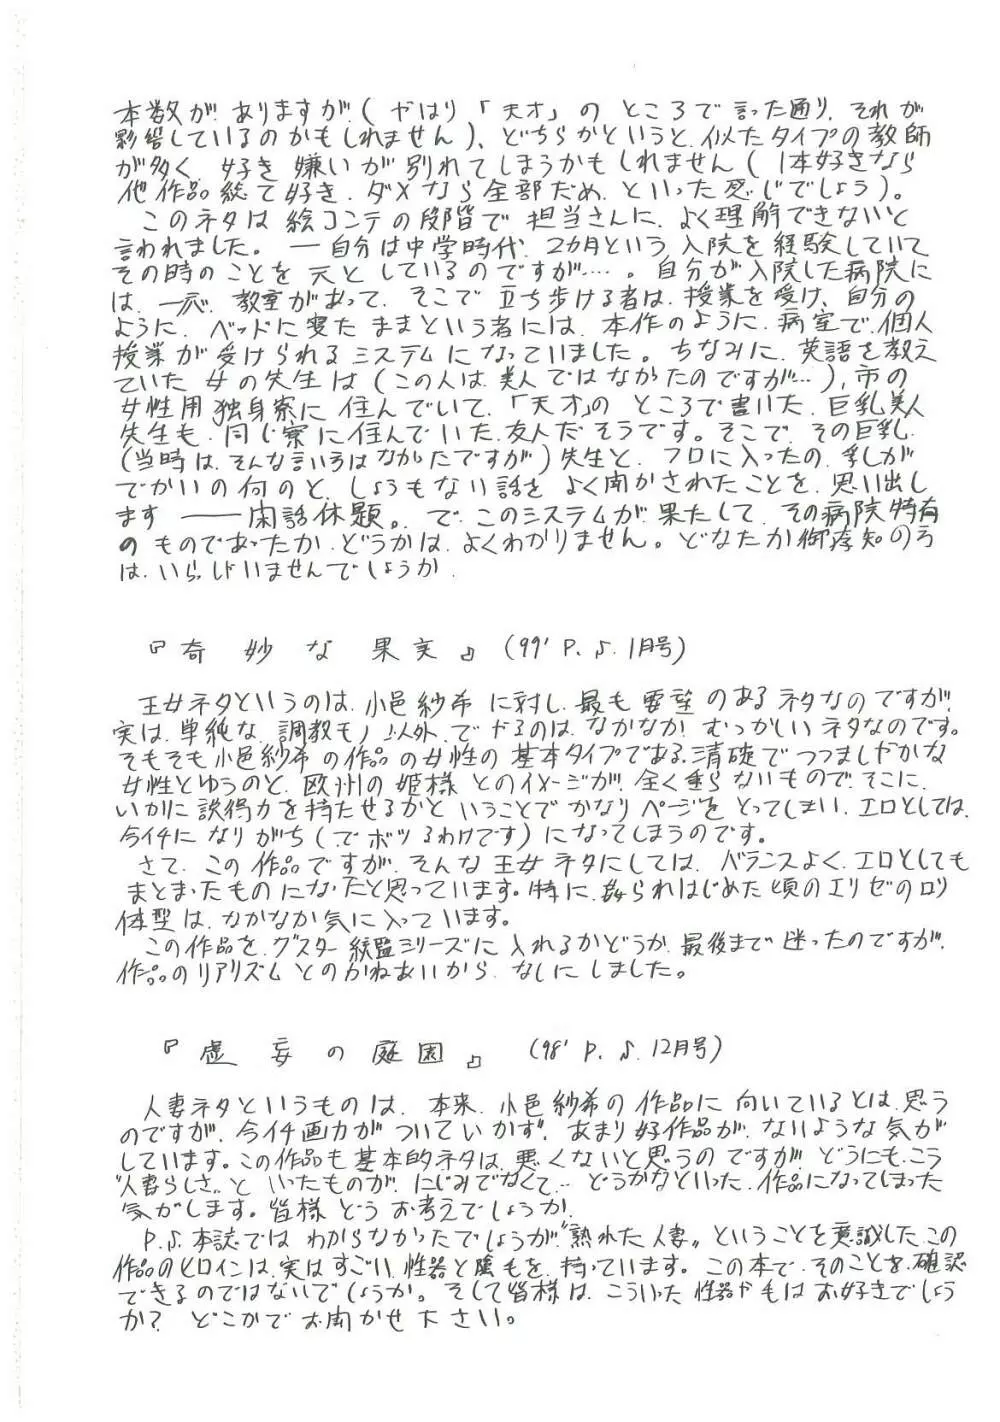 本数がありますが(やはり「天才」のところで言った通り、それが
影響しているのかもしれません)、どちらかというと、似たタイプの教師
が多く、好き嫌いが別れてしまうかもしれません(1本好きなら
他作品総て好き、ダメなら全部だめ、といった感じでしょう)。
このネタは絵コンテの段階で担当さんに、よく理解できないと
言われました。―自分は中学時代、2カ月という入院を経験していて
その時のことを元としているのですが…。自分が入院した病院に
は、一応、教室があって、そこで立ち歩ける者は、授業を受け、自分の
ように、ベッドに寝たままという者には、本作のように、病室で、個人
授業が受けられるシステムになっていました。ちなみに、英語を教え
ていた女の先生は(この人は、美人ではなかったのですが…)、市の
女性用独身寮に住んでいて、「天才」のところで書いた、巨乳美人
先生も、同じ寮に住んでいた、友人だそうです。そこで、その巨乳
(当時は、そんな言いろはなかったですが)先生と、フロに入ったの、乳が
でかいの何のと、しょうもない話を、よく聞かされたことを、思い出し
ます――閑話休題。で、このシステムが果たして、その病院特有
のものであったか、どうかは、よくわかりません。どなたか御存知の方
は、いらっしゃいませんでしょうか。
『奇妙な果実』(99' P.♪.1月号)
王女ネタというのは、小邑紗希に対し、最も要望のあるネタなのですが、
実は、単純な、調教モノ以外、でやるのは、なかなか、むつかしいネタなのです。
そもそも小邑紗希の作品の女性の基本タイプである、清礎でつつましやかな
女性とゆうのと、欧州の姫様とのイメージが、全く重らないもので、そこに、
いかに説得力を持たせるかということでかなりページをとってしまい、エロとしては、
今イチになりがち(でボツるわけです)になってしまうのです。
さて、この作品ですが、そんな王女ネタにしては、バランスよく、エロとしても
まとまったものになったと思っています。特に、姦られはじめた頃のエリゼのロリ
体型は、なかなか気に入っています。
この作品を、グスター総監シリーズに入れるかどうか、最後まで迷ったのですが、
作品のリアリズムとのかねあいから、なしにしました。
『虚妄の庭園』(98' P.♪.12月号)
人妻ネタというものは、本来、小邑紗希の作品に向いているとは、思う
のですが、今イチ画力がついていかず、あまり好作品が、ないような気が
しています。この作品も基本的ネタは、悪くないと思うのですが、どうにも、こう
"人妻らしさ"といったものが、にじみでなくて…どうかなといった、作品になってしまった
気がします。皆様どうお考えでしょうか。
P.♪.本誌ではわからなかったでしょうが、"熟れた人妻"ということを意識したこの
作品のヒロインは、実はすごい、性器と陰毛を、持っています。この本で、そのことを、確認
できるのではないでしょうか。そして皆様は、こういった性器かもはお好きでしょう
か? どこかでお聞かせ下さい。